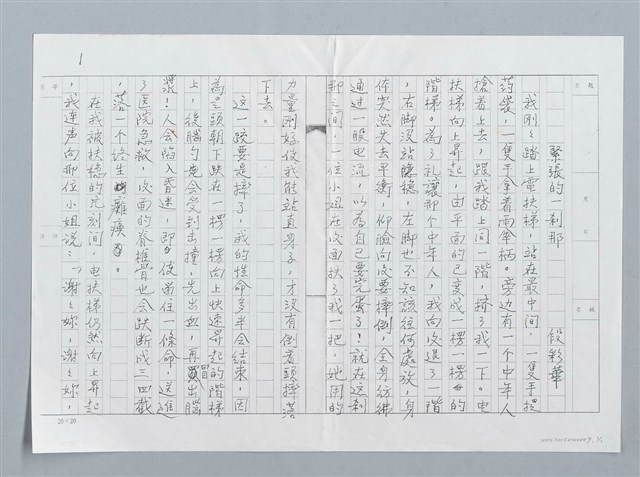 1
緊張的一刹那
段彩華
我剛剛踏上電扶梯，站在最中間，一隻手提
葯袋，一隻手拿着雨傘柄。旁边有一个中年人
搶着上去，跟我踏上同一階，擠了我一下。电
扶梯向上昇起，由平面的已变成一楞一楞的
階梯。為了礼讓那个中年人，我向后退了一階
，右脚沒站隐穩，左脚也不知該往何處放，身
体突然失去平衡，仰臉向后要摔倒，全身彷彿
通过一股电流，以為自己要完蛋了！就在这刹
那之间，一位小姐在后面扶了我一把，她用的
力量剛好使我能站直身子，才沒有倒着頭摔落
下去。
这一跤要是摔了，我的性命多半会結束，因
為是頭朝下跌在一楞一楞向上快速昇起的階梯
上，後腦勺也会受到击撞，先出血，再冒出腦
漿！人会陷入昏迷，即使留住一條命，送進
了医院急救，后面的脊椎骨也会跌断成三四截
，落一个終生癱瘓。
在我被扶穩的片刻间，电扶梯仍然向上昇起
，我连声向那位小姐说：「謝謝妳，謝謝妳，
20×20